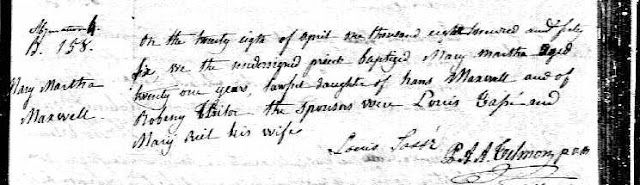 B. 158.
Mary Martha
Maxwell.
On the twenty eight of april one thousand eight hundred and fifty
six, we the undersigned priest baptized Mary Martha aged
twenty one years, lawful daughter of hans Maxwell and of
the Sponsors were Louis and
Mary his wife
Louis